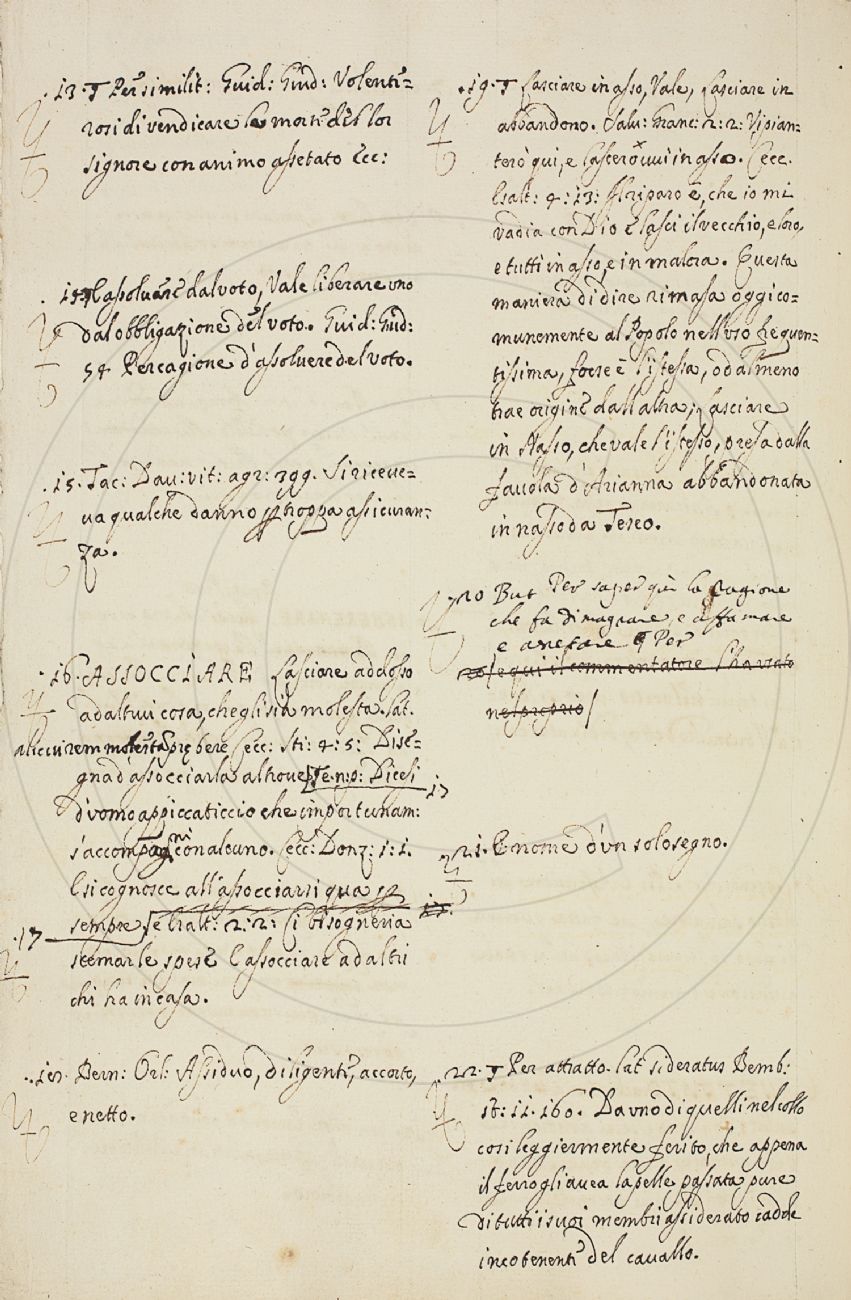 13. ¶ Per similit: Guid: Giud: Volente-
rosi di vendicare la morte del lor
signore con animo assetato Ecc:
assoluere dal voto, Vale liberare uno
dal obbligazione del voto. Guid: Giud:
54 Per cagione d'assoluere del voto.
15. Tac: Dau: vit: agr: 399. Si riceue-
ua qualche danno p troppa assicuran-
za.
16. ASSOCCIARE Lasciare addosso
ad altrui cosa, che gli sia molesta. Lat.
alicui rem molestam prębere Cecc: Sti: 4: 5: Dise-
gna d'assocciarla altroue
Dicesi 17
d'uomo appiccaticcio che importunam:
s'accompagni con alcuno. Cecc: Donz: 1: 1.
E si cognosce all'assocciarsi qua p
sempre. e Esalt: 2: 2: Ci bisogneria 17.
17 scemar le spese E assocciare ad altri
chi ha in casa.
Bern: Orl: Assiduo, diligente, accorto,
e netto.
19. ¶ Lasciare in asso, Vale, Lasciare in
abbandono. Salu: Granc: 2: 2: Vi pian-
terò qui, e lascerovvi in asso. Cecc.
Esalt: 4: 13: Il riparo è, che io mi
vadia con Dio e lasci il vecchio, e loro,
e tutti in asso, e in malora. Questa
maniera di dire rimasa oggi co-
munemente al Popolo nell'uso frequen-
tissima, forse è l'istessa, od almeno
trae origine dall'altra; Lasciare
in Nasso, che vale l'istesso, presa dalla
fauola d'Arianna abbandonata
in nasso da Teseo.
20 But Per saper qui la ragione
che fa dimagrare, e affamare
e assetare ¶ Per
e qui il commentatore l'ha usato
nel proprio
21. E nome d'un solo segno.
22. ¶ Per attratto. lat sideratus Bemb:
st: 11. 160. Da uno di quelli nel collo
così leggiermente ferito, che appena
il ferro gli auea la pelle passata pure
di tutti i suoi membri assiderato cadde
incontenente del cauallo.